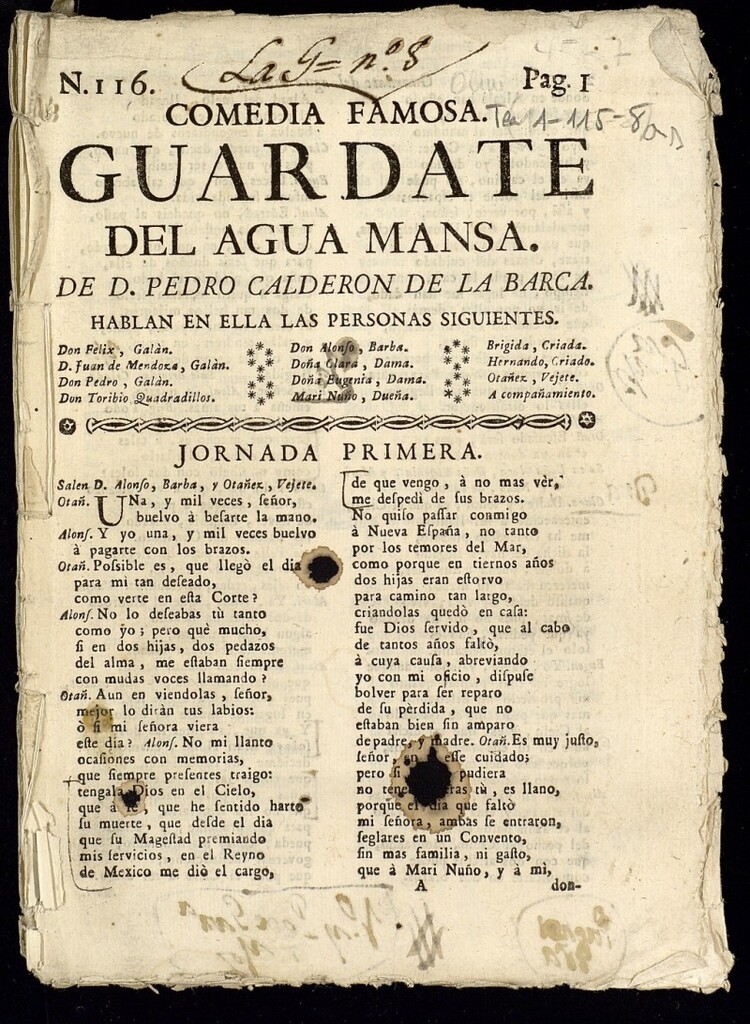 La G= nº. 8
N. 116.
Pag. 1
COMEDIA FAMOSA.
GUARDATE
DEL AGUA MANSA.
DE D. PEDRO CALDERON DE LA BARCA.
HABLAN EN ELLA LAS PERSONAS SIGUIENTES.
Don Felix, Galàn.
D. Juan de Mendoza, Galàn.
Don Pedro, Galàn.
Don Toribio Quadradillos.
Don Alonſo, Barba.
Doña Clara, Dama.
Doña Eugenia, Dama.
Mari Nuño, Dueña.
Brigida, Criada.
Hernando, Criado.
Otañez, Vejete.
Acompañamiento.
JORNADA PRIMERA.
Salen D. Alonſo, Barba, y Otañez, Vejete.
Otañ. UNa, y mil veces, ſeñor,
buelvo à beſarte la mano.
Alonſ. Y yo una, y mil veces buelvo
à pagarte con los brazos.
Otañ. Poſsible es, que llegò el dia
para mi tan deſeado,
como verte en eſta Corte?
Alonſ. No lo deſeabas tù tanto
como yo; pero què mucho,
ſi en dos hijas, dos pedazos
del alma, me eſtaban ſiempre
con mudas voces llamando?
Otañ. Aun en viendolas, ſeñor,
mejor lo diràn tus labios:
ò ſi mi ſeñora viera
eſte dia? Alonſ. No mi llanto
ocaſiones con memorias,
que ſiempre preſentes traigo:
tengala Dios en el Cielo,
que à fe, que he ſentido harto
ſu muerte, que deſde el dia
que ſu Mageſtad premiando
mis ſervicios, en el Reyno
de Mexico me diò el cargo,
de que vengo, à no mas vèr,
me deſpedì de ſus brazos.
No quiſo paſſar conmigo
à Nueva Eſpaña, no tanto
por los temores del Mar,
como porque en tiernos años
dos hijas eran eſtorvo
para camino tan largo,
criandolas quedò en caſa:
fue Dios ſervido, que al cabo
de tantos años faltò,
à cuya cauſa, abreviando
yo con mi oficio, diſpuſe
bolver para ſer reparo
de ſu pèrdida, que no
eſtaban bien ſin amparo
de padre, y madre. Otañ. Es muy juſto,
ſeñor, en eſſe cuidado;
pero ſi pudiera
no tene tù, es llano,
porque el dia que faltò
mi ſeñora, ambas ſe entraron,
ſeglares en un Convento,
ſin mas familia, ni gaſto,
que à Mari Nuño, y à mì,
A
don-